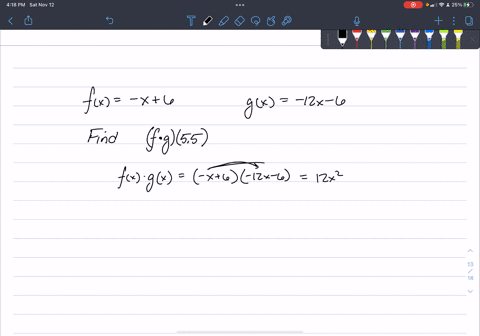 4:18 PM Sat Nov 12
25%
f(x) = -x+6 g(x) = -12x-6
Find (f·g)(5.5)
f(x)·g(x) = (-x+6)(-12x-6) = 12x²
13
/
16